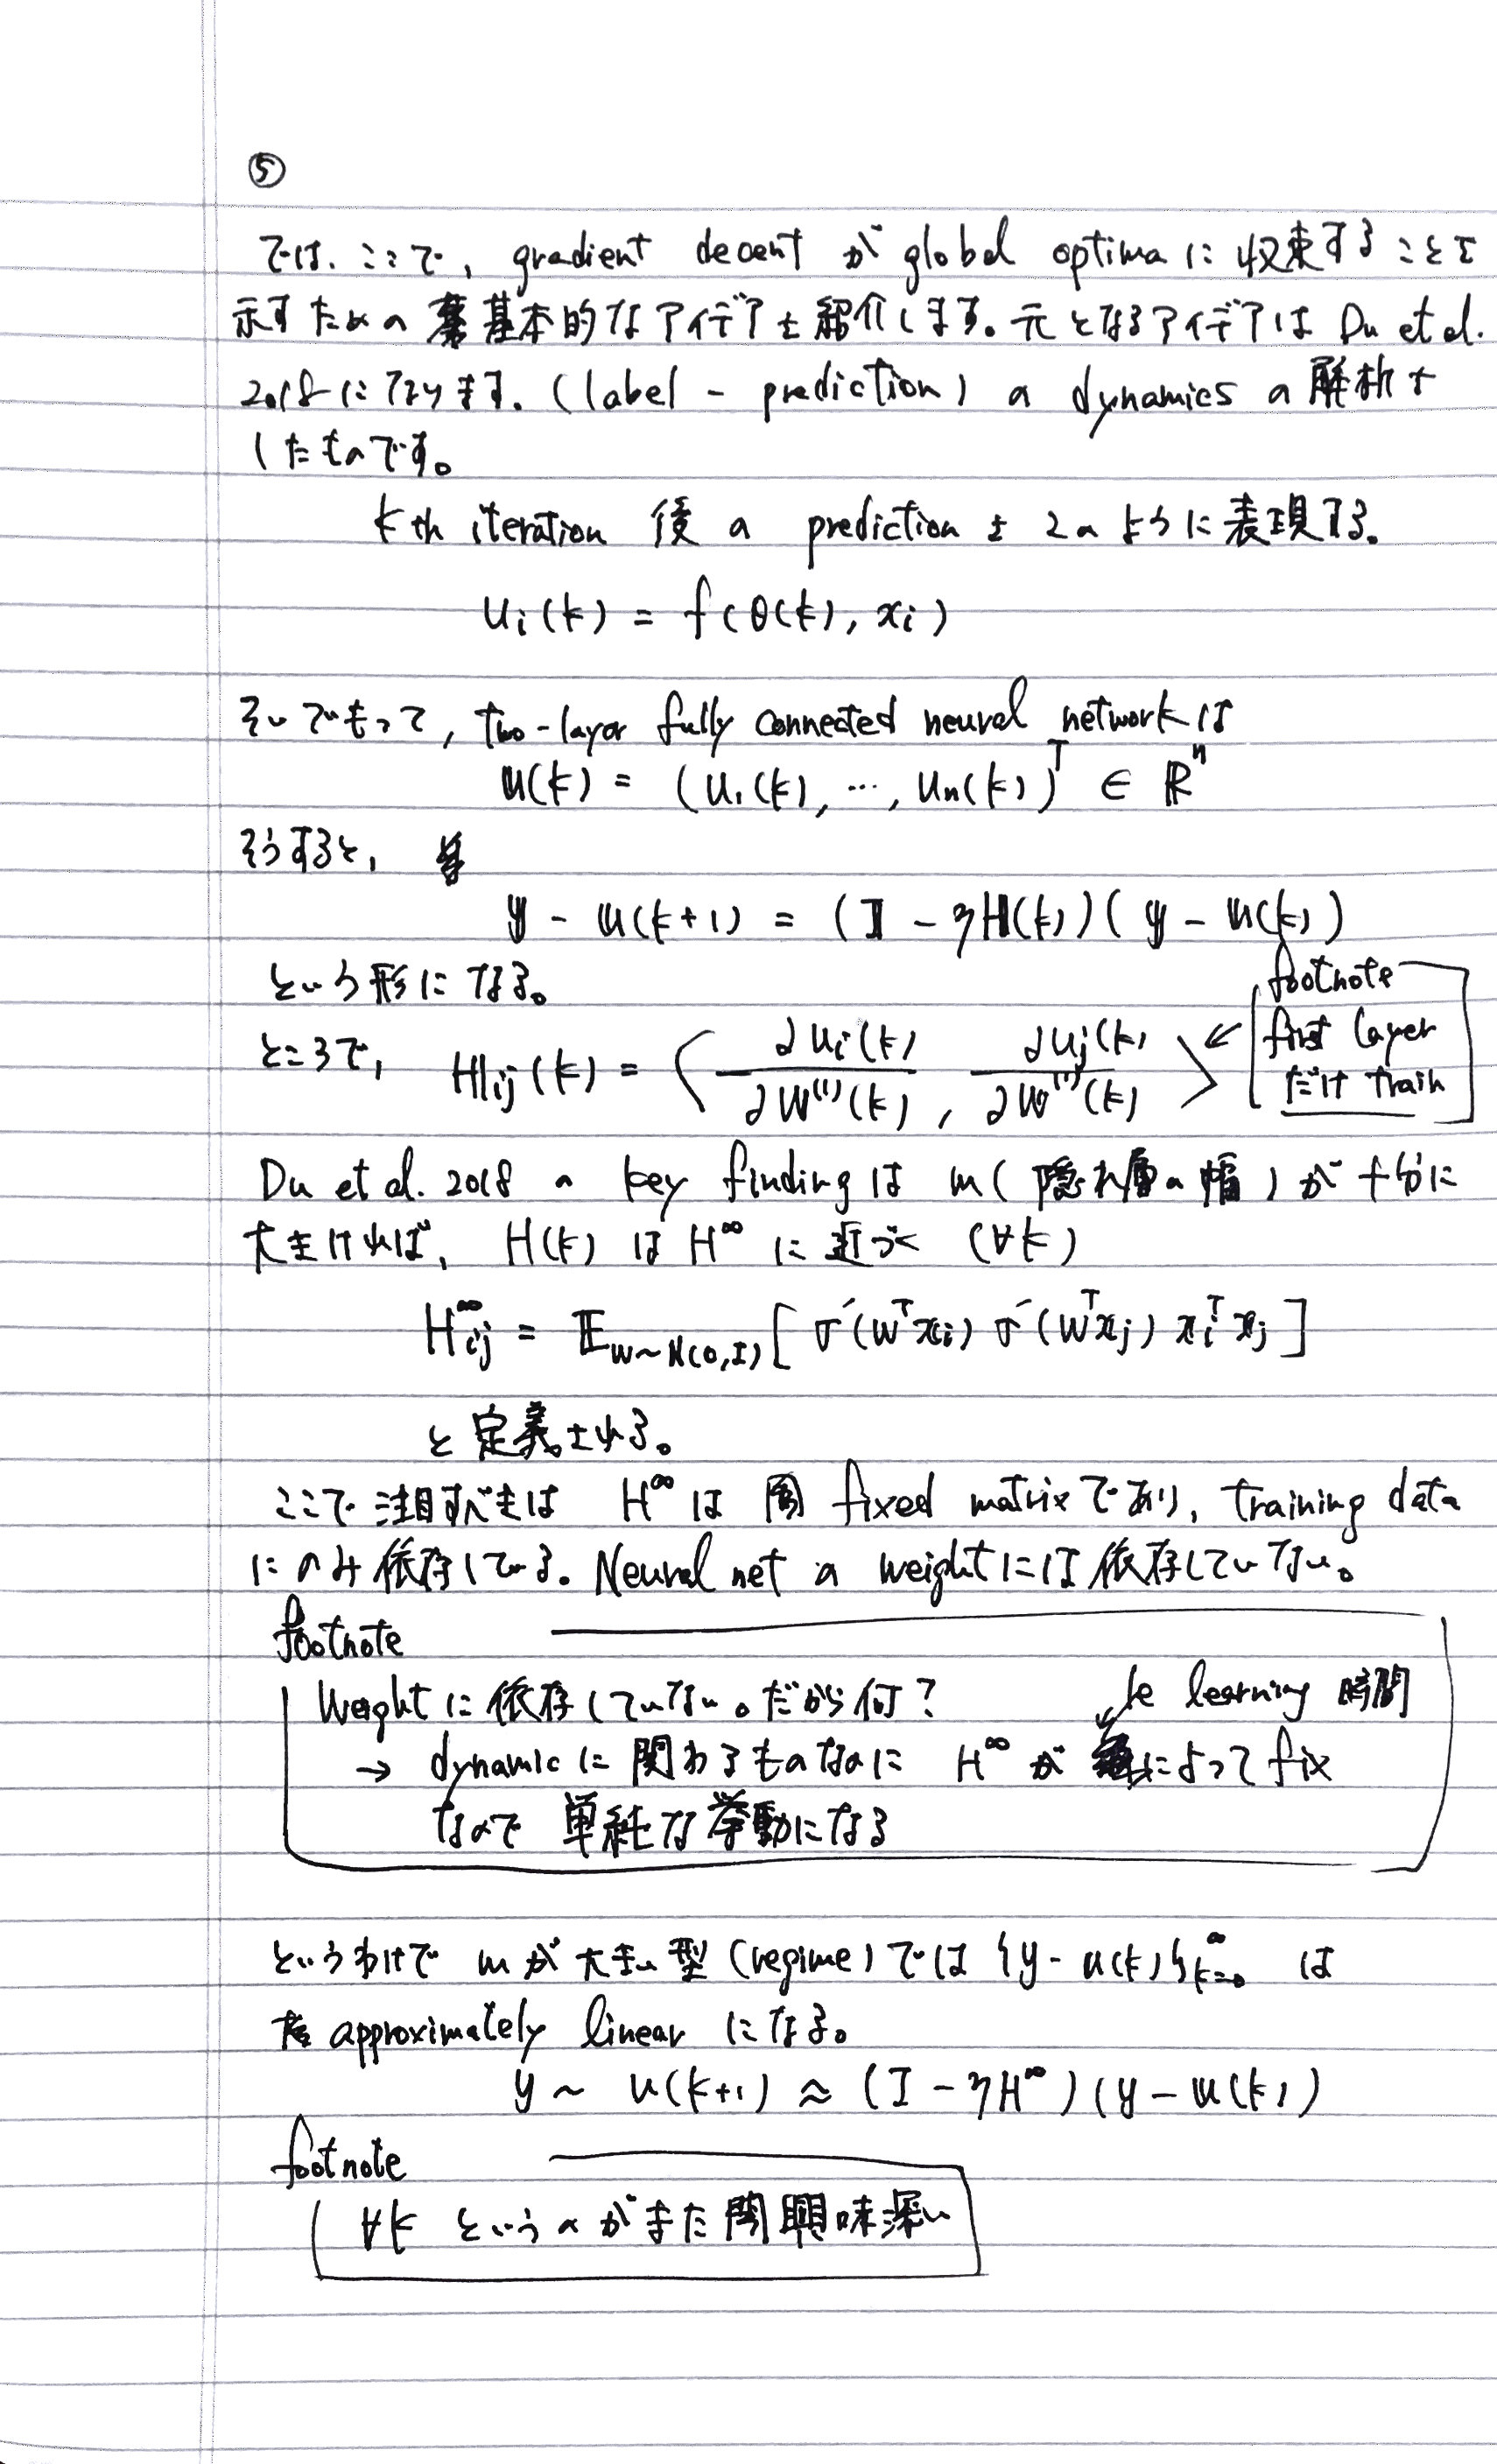 ⑤
では、ここで, gradient decent が global optima に 収束することを
示すための 基本的なアイデアを紹介します。元となるアイデアは Du et al.
2018 になります. (label - prediction) の dynamics の 解析を
したものです。
k th iteration 後 の prediction を 次のように表現する。
u_i(k) = f(θ(k), x_i)
そいでもって, two-layer fully connected neural network は
u(k) = (u_1(k), …, u_n(k))^T ∈ ℝ^n
そうすると,
y - u(k+1) = (I - ηH(k))(y - u(k))
という形になる。
footnote
first layer
だけ train
ところで, H_ij(k) = ⟨ ∂u_i(k)/∂W^(1)(k) , ∂u_j(k)/∂W^(1)(k) ⟩
Du et al. 2018 の key finding は m(隠れ層の幅) が 十分に
大きければ、 H(k) は H^∞ に 近づく (∀k)
H^∞_ij = 𝔼_{W∼N(0,I)} [ σ'(W^T x_i) σ'(W^T x_j) x_i^T x_j ]
と 定義される。
ここで 注目すべきは H^∞ は fixed matrix であり, training data
にのみ 依存している. Neural net の weight には 依存していない。
footnote
weight に 依存していない。だから何?
k learning 時間
→ dynamic に 関わるものなのに H^∞ が によって fix
なので 単純な挙動になる
というわけで m が 大きい 型 (regime) では {y - u(k)}^∞_{k=0} は
approximately linear になる。
y ~ u(k+1) ≈ (I - ηH^∞)(y - u(k))
footnote
∀k というのがまた 興味深い